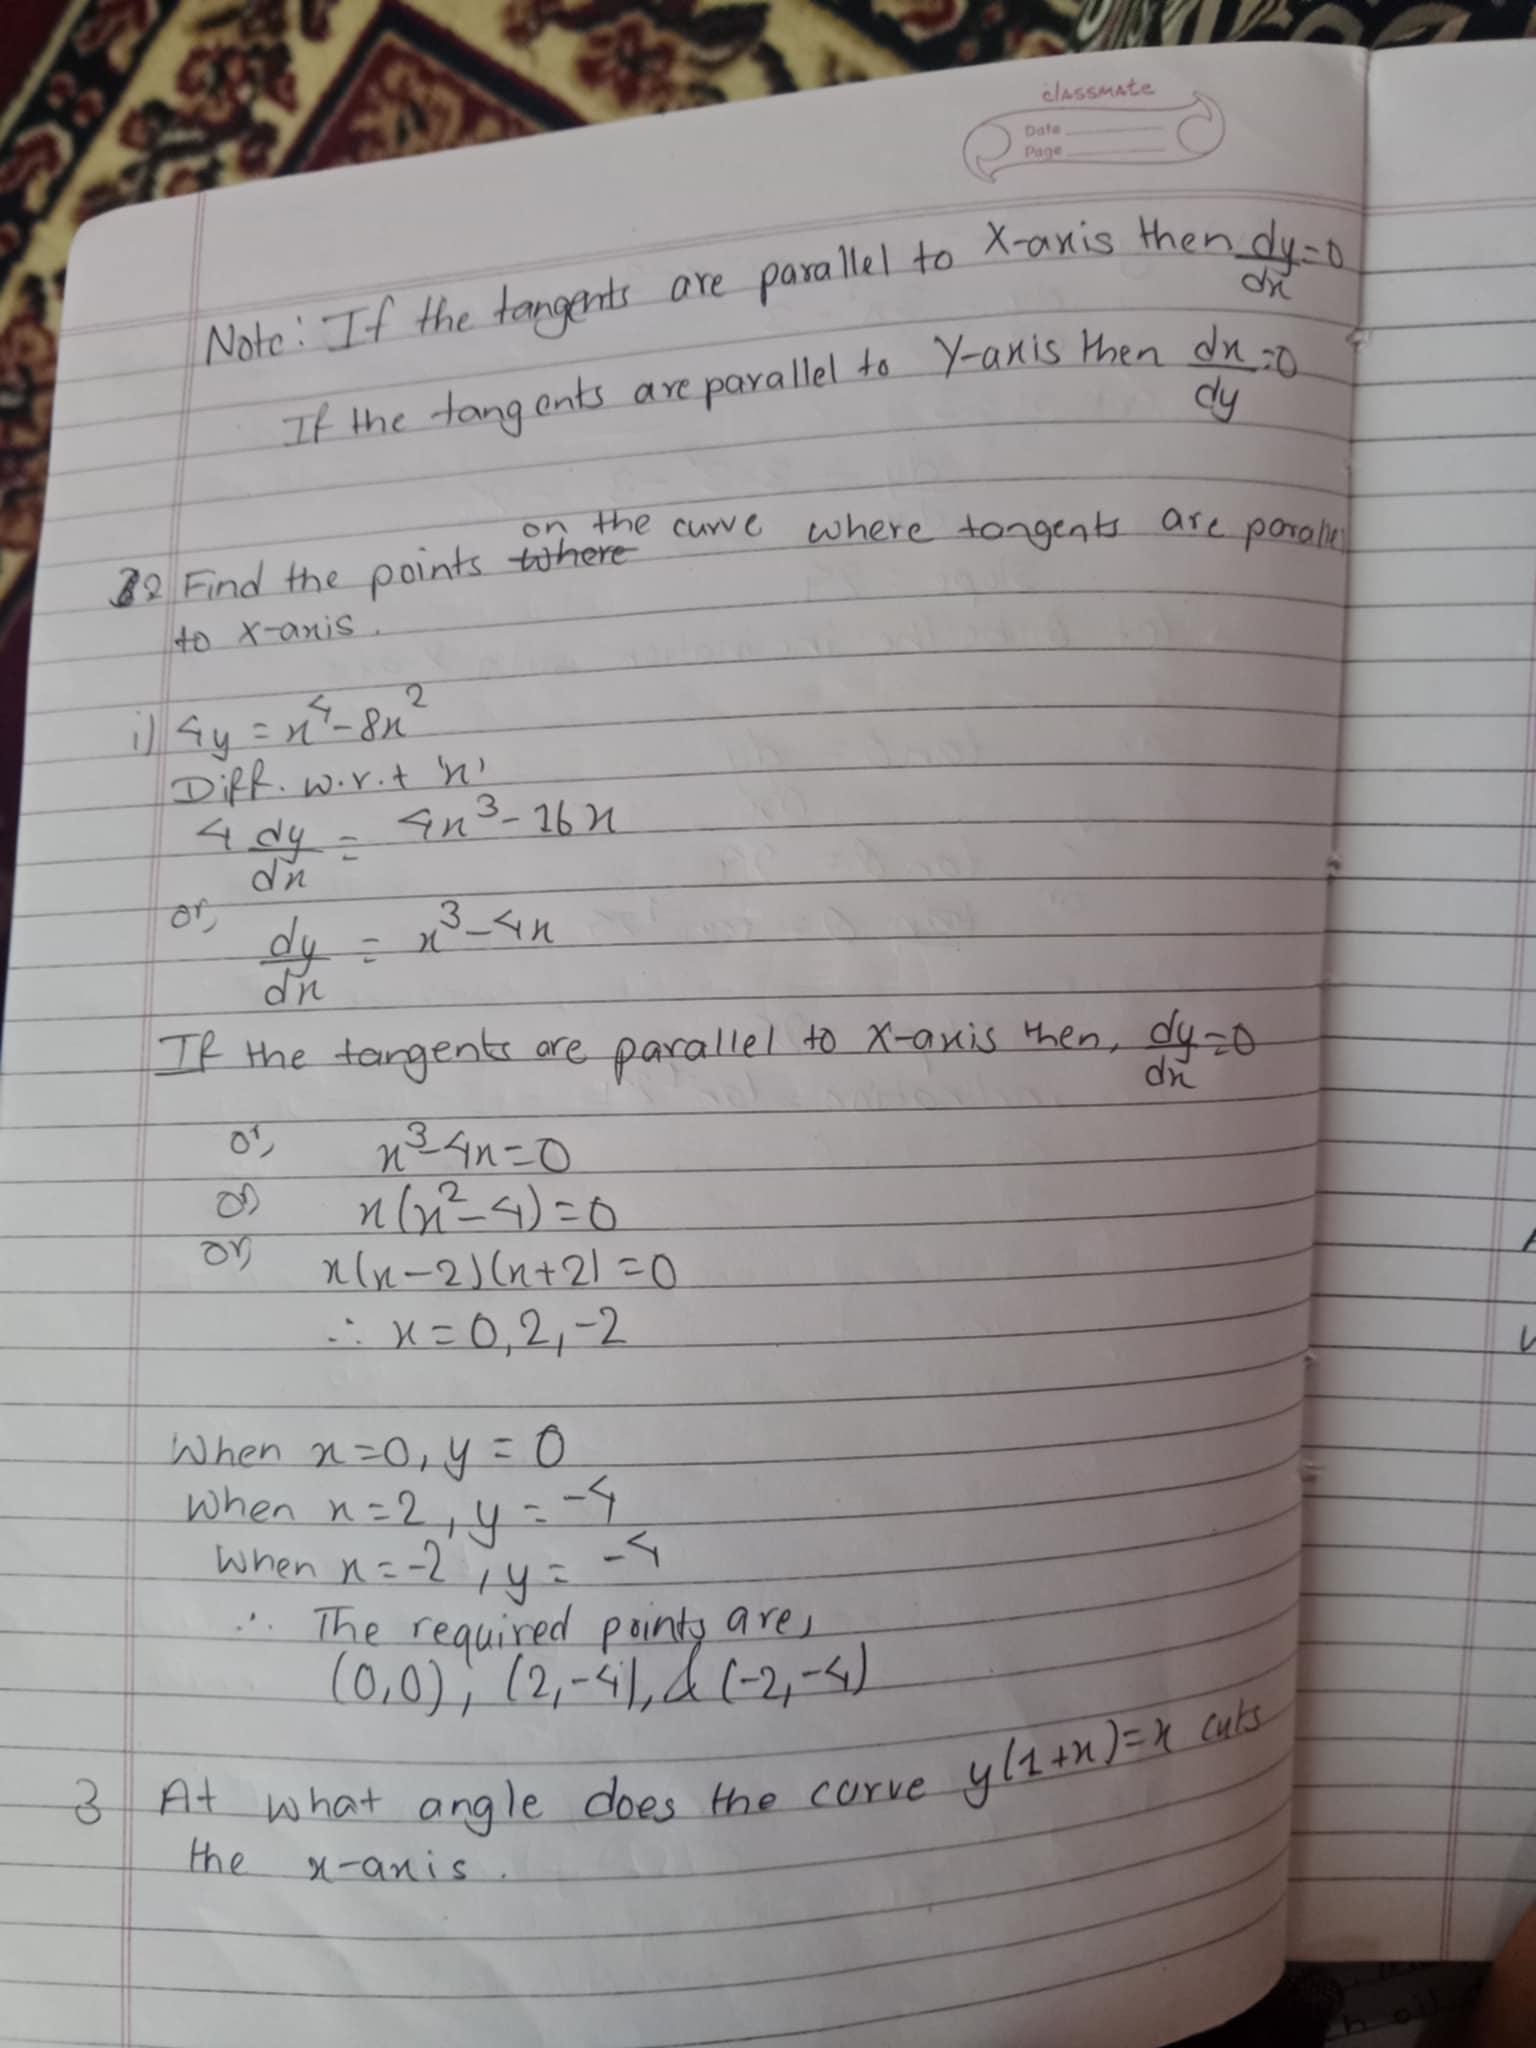 classmate
Date
Page
Note: If the tangents are parallel to X-axis then dy/dx=0
If the tangents are parallel to Y-axis then dx/dy=0
2 Find the points on the curve where tangents are parallel
to x-axis.
i) 4y = x⁴-8x²
Diff. w.r.t 'x'
4 dy/dx = 4x³-16x
or, dy/dx = x³-4x
If the tangents are parallel to X-axis then, dy/dx=0
or, x³-4x=0
or, x(x²-4)=0
or, x(x-2)(x+2)=0
∴ x=0,2,-2
When x=0, y=0
When x=2, y=-4
When x=-2, y=-4
∴ The required points are,
(0,0), (2,-4), & (-2,-4)
3 At what angle does the curve y(1+x)=x cuts
the x-axis.